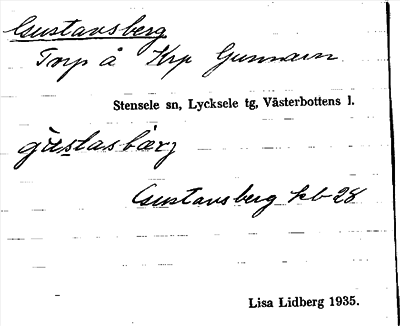 Gustavsberg
Torp å Krp Gunnarn
Stensele sn, Lycksele tg, Västerbottens l.
gustasbærj
Gustavsberg kb 28
Lisa Lidberg 1935.